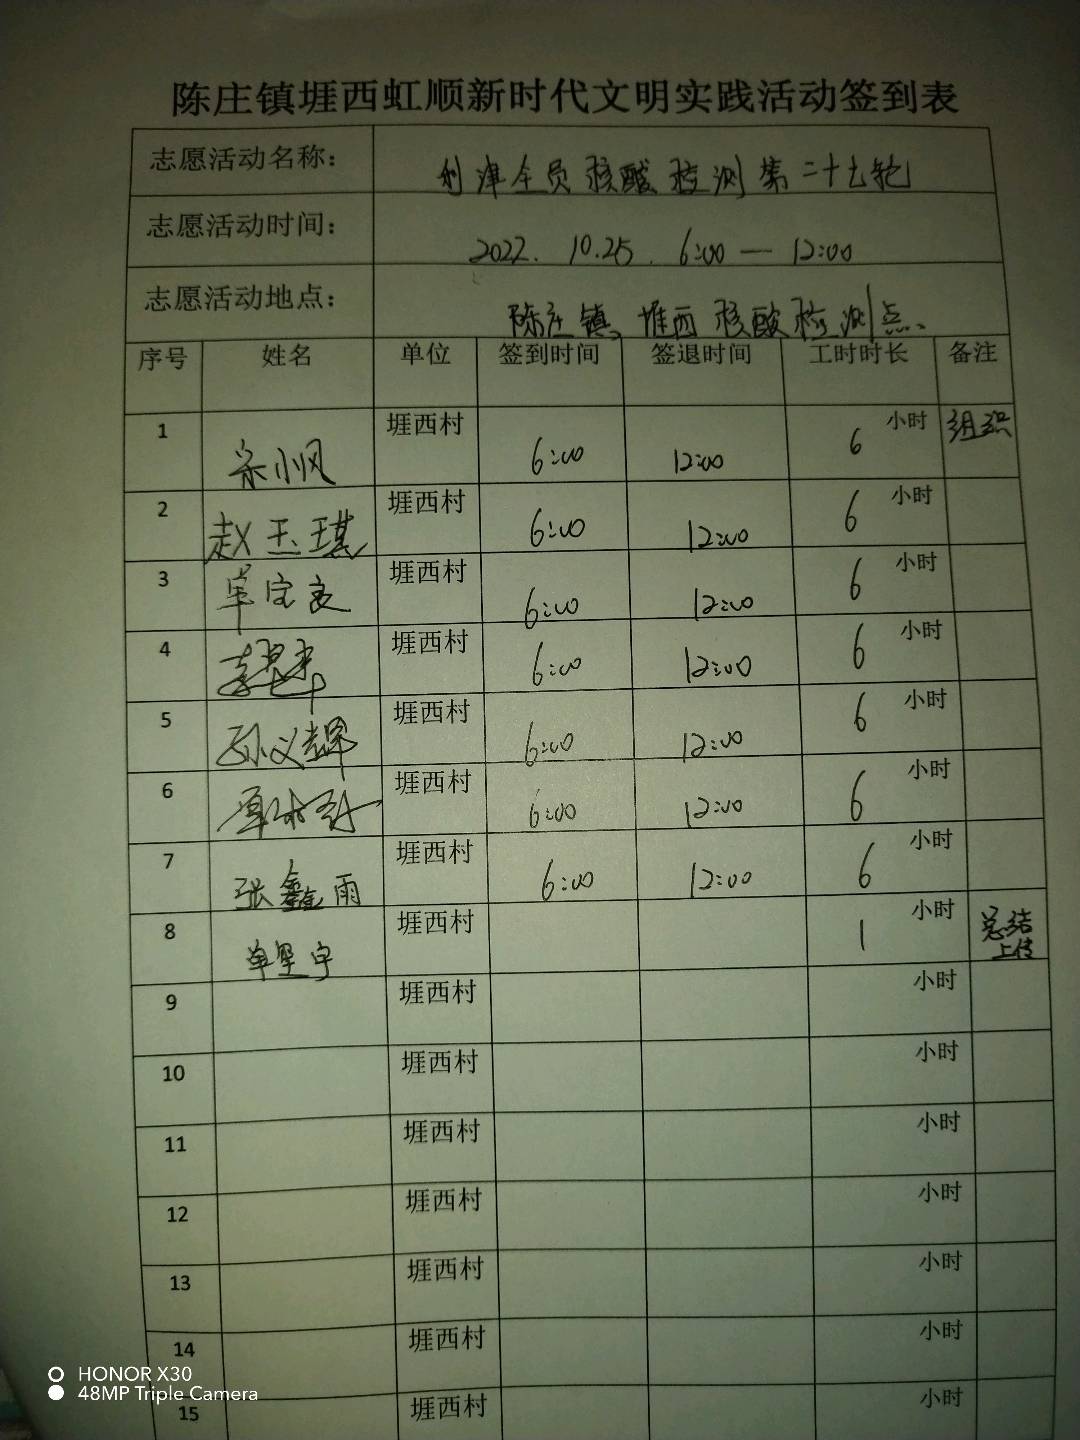 陈庄镇堐西虹顺新时代文明实践活动签到表
志愿活动名称： 利津全员核酸检测第二十七轮
志愿活动时间： 2022.10.25. 6:00—12:00
志愿活动地点： 陈庄镇、堐西核酸检测点、
序号 姓名 单位 签到时间 签退时间 工时时长 备注
1 宋小风 堐西村 6:00 12:00 6 小时 组织
2 赵玉琪 堐西村 6:00 12:00 6 小时
3 单宝良 堐西村 6:00 12:00 6 小时
4 堐西村 6:00 12:00 6 小时
5 孙义辉 堐西村 6:00 12:00 6 小时
6 堐西村 6:00 12:00 6 小时
7 张鑫雨 堐西村 6:00 12:00 6 小时
8 单坚宇 堐西村 1 小时 总结上传
9 堐西村 小时
10 堐西村 小时
11 堐西村 小时
12 堐西村 小时
13 堐西村 小时
14 堐西村 小时
15 堐西村 小时
HONOR X30
48MP Triple Camera